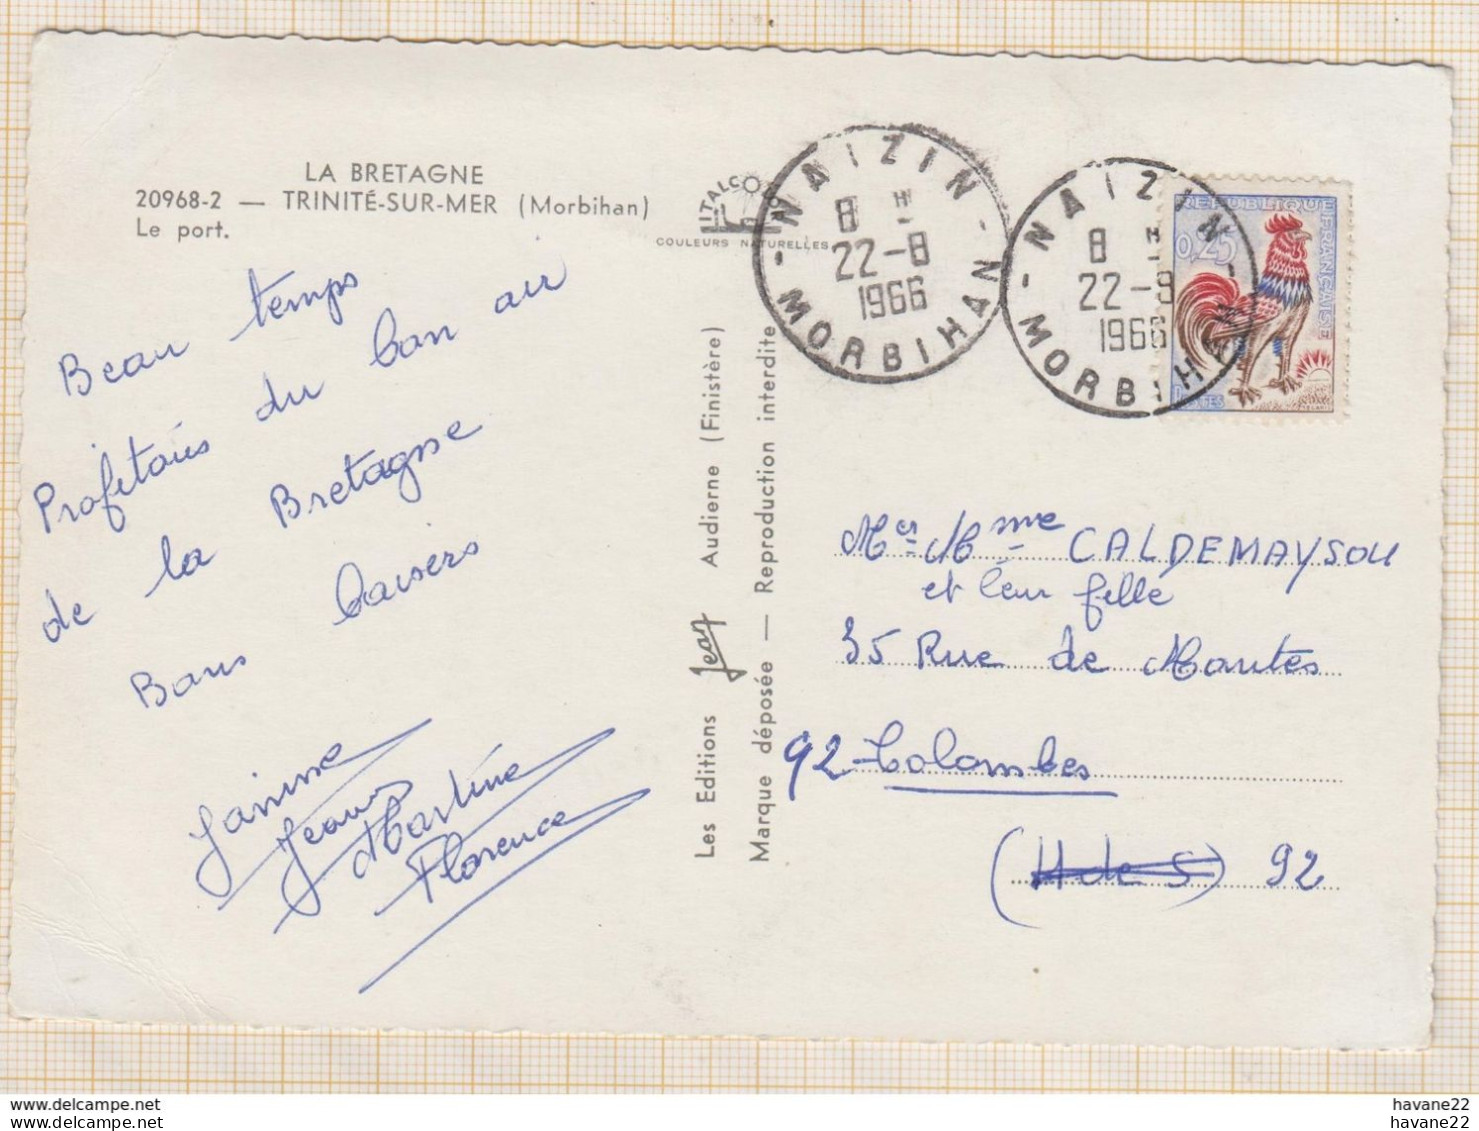 LA BRETAGNE
20968-2 — TRINITÉ-SUR-MER (Morbihan)
Le port.
ITALCOLOR
COULEURS NATURELLES
Beau temps
Profitons du bon air
de la Bretagne
Bons baisers
Janine
Jeanis
Martine
Florence
Les Editions Jean Audierne (Finistère)
Marque déposée — Reproduction interdite
NAIZIN
8 H
22-8
1966
MORBIHAN
NAIZIN
8 H
22-8
1966
MORBIHAN
REPUBLIQUE FRANÇAISE
0,25
POSTES
Mr. Mme CALDEMAYSOU
et leur fille
35 Rue de Nantes
92-Colombes
(H de S) 92
havane22
havane22
www.delcampe.net
www.delcampe.net